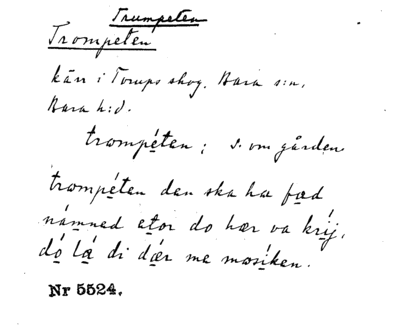 Trumpeten
Trompeten
kärr i Torups skog. Bara s:n,
Bara h:d.
trompéten; s. om gården
trompéten den ska ha fæd
námned etor do hær va kríj,
dó lá di dǽr me mosíken.
Nr 5524.